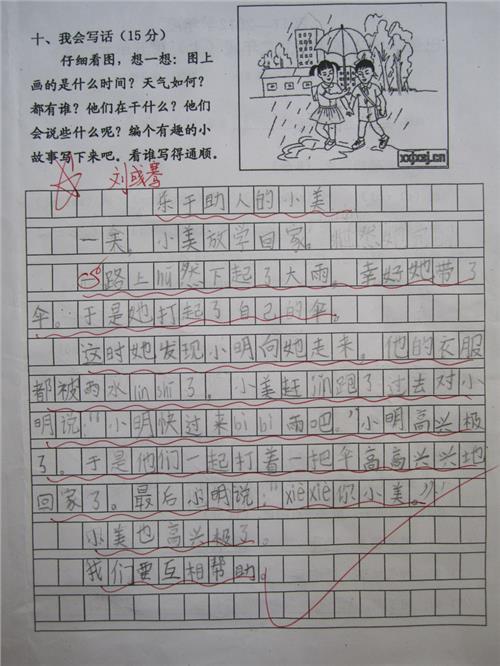 十、我会写话(15分)
仔细看图,想一想:图上
画的是什么时间?天气如何?
都有谁?他们在干什么?他们
会说些什么呢?编个有趣的小
故事写下来吧。看谁写得通顺。
xxjxsj.cn
乐于助人的小美
一天,小美放学回家。
路上hū然下起了大雨。幸好她带了
伞。于是她打起了自己的伞。
这时她发现小明向她走来。他的衣服
都被雨水lin shī了。小美赶jǐn跑了过去对小
明说:“小明快过来bì bì雨吧。”小明高兴极
了。于是他们一起打着一把伞高高兴兴地
回家了。最后小明说:“xiè xiè你小美。”
小美也高兴极了。
我们要互相帮助。